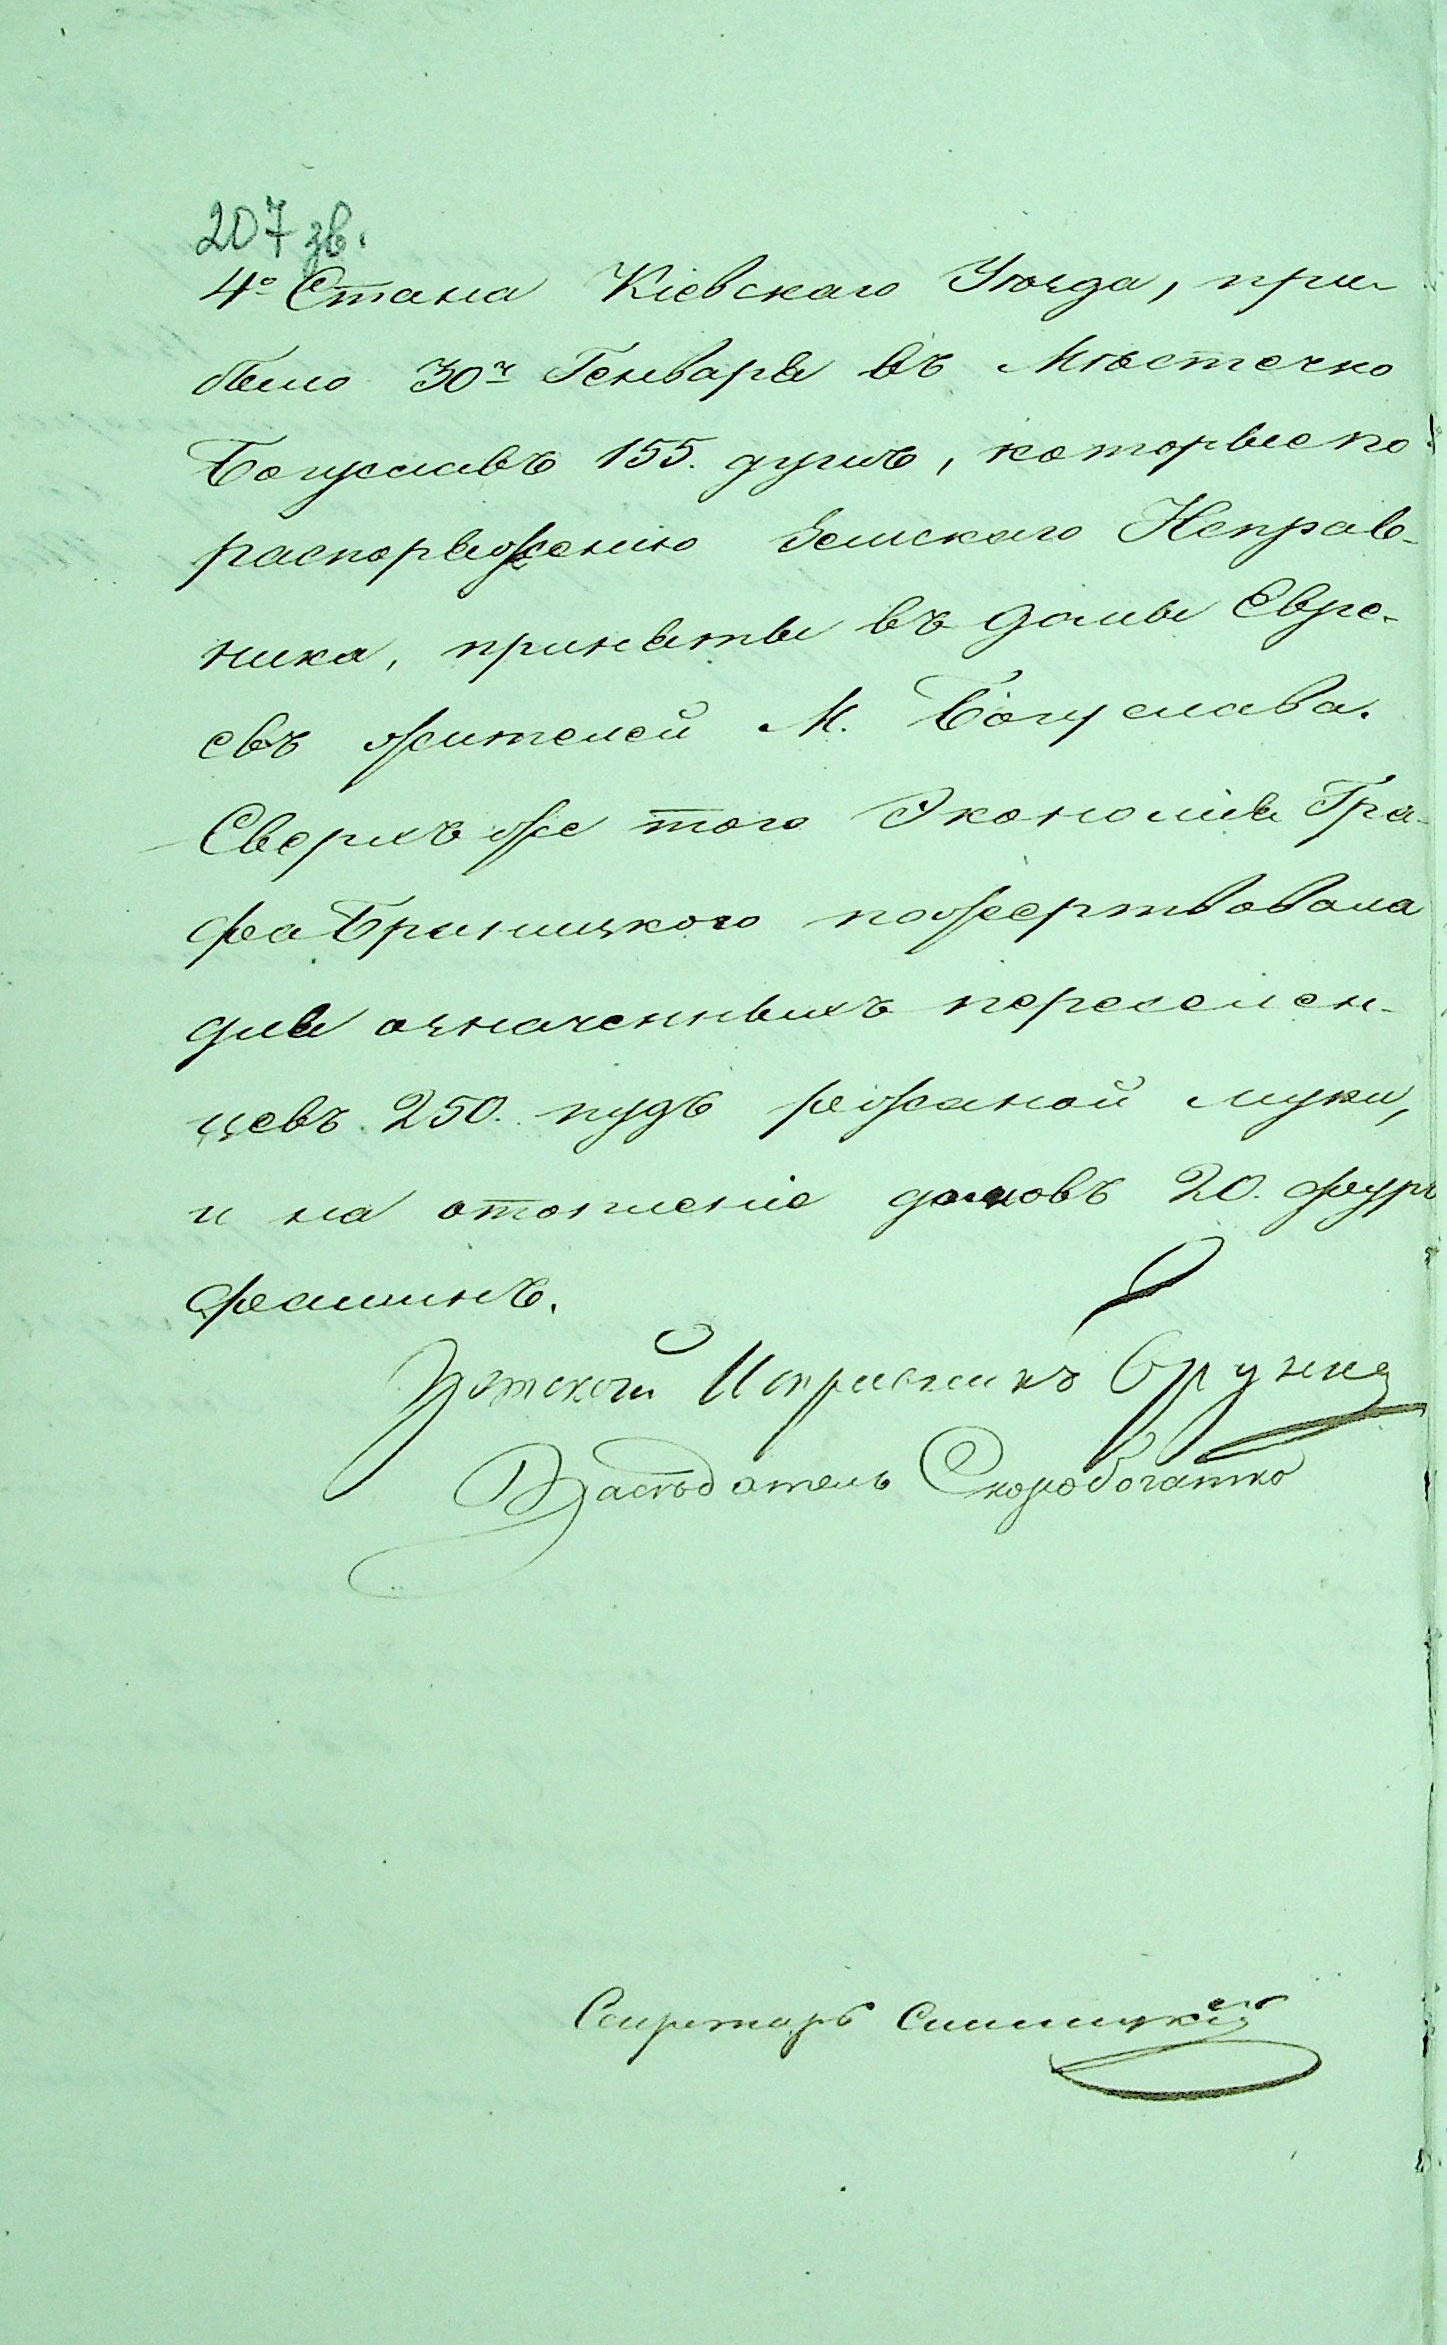 207 зв.
4го Стана Кіевскаго Уѣзда, при-
было 30го Генваря въ Мѣстечко
Богуславъ 155. душъ, которые по
распоряженію Земскаго Исправ-
ника, приняты въ домы Евре-
евъ жителей М. Богуслава.
Сверхъ же того Экономія Гра-
фа Браницкого пожертвовала
для означенныхъ переселен-
цевъ 250. пудъ ржаной муки,
и на отопленіе домовъ 20. фуръ
фашинъ.
Земской Исправникъ
Засѣдатель Скоробогатко
Секретарь